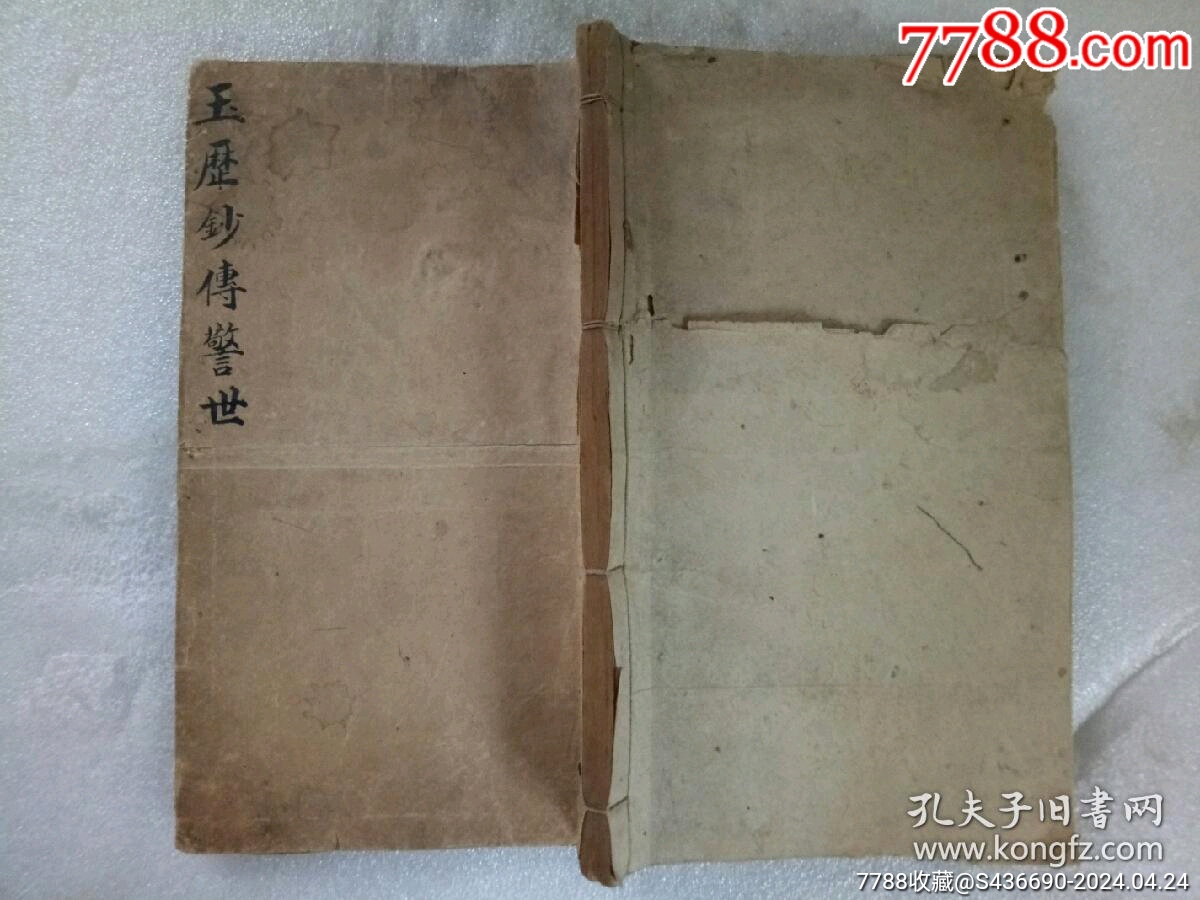 玉歷鈔傳警世
7788.com
孔夫子旧書网
www.kongfz.com
7788收藏@S436690-2024.04.24